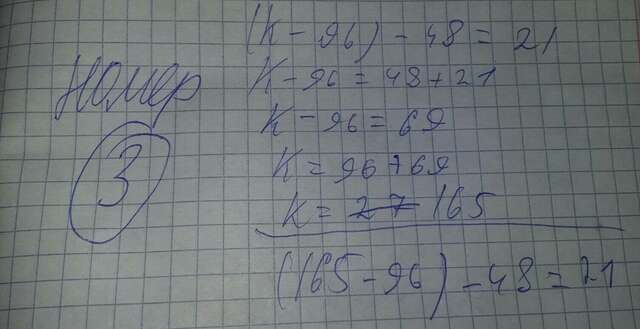 Номер
3
(К - 96) - 48 = 21
К - 96 = 48 + 21
К - 96 = 69
К = 96 + 69
К = 27 165
(165 - 96) - 48 = 21